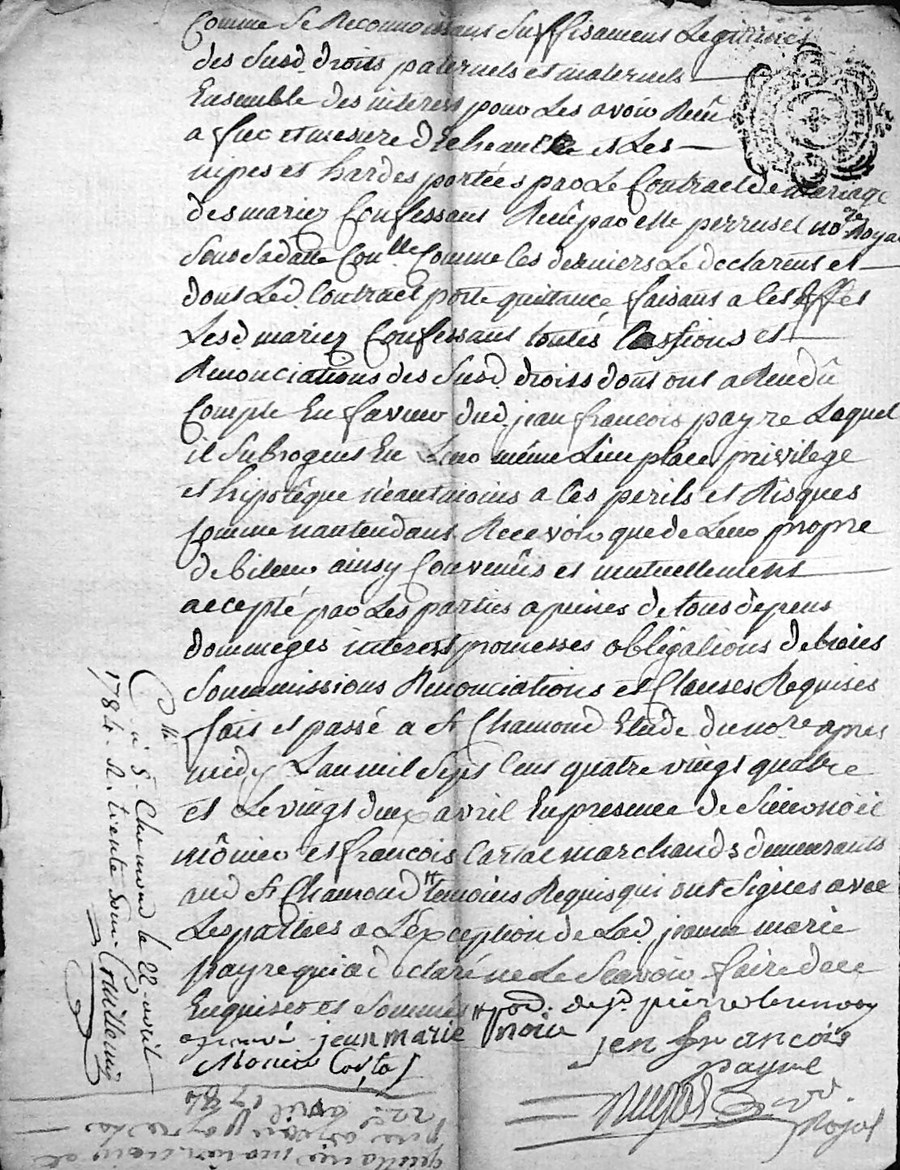 Comme Se Reconnoissans Suffisament Legitimes
des Susd. droits paternels et maternels
Ensemble des interests pour Les avoir Reçu
a fur et mesure d'Echeance et Les
nipes et hardes portées par Le Contract de mariage
des mariez Confessant Reçû par elle perrusel no.re Royal
Sous Sa datte Con.lle Comme Ces derniers Le declarent et
dont Led. Contract porte quittance faisant a Ces Effes
Lesd. mariez Confessant toutes Cessions et
Renonciations des Susd. droits dont ont a Rendû
Compte En faveur dud. jean françois payre Lequel
il Subrogent En Leur même Lieu place privilege
et hipotêque néantmoins a Ces perils et Risques
Comme nantendant Recevoir que de Leur propre
debiteur ainsy Convenûs et mutuellement
accepté par Les parties a peines de tous dépens
dommeges interest promesses obligations de biens
Soummissions Renonciations et Clauses Requises
fait et passé a St. Chamond Etude du no.re apres
midy L'an mil Sept Cent quatre vingt quatre
et Le vingt deux avril En presence de
et françois marchands demeurants
aud. St. Chamond temoins Requis qui ont Signés avec
Les parties a L'exception de Lad. jeanne marie
payre qui a déclaré ne Le Scavoir faire de ce
Enquise et Sommée
jean marie
jen françois
payre
Royal
C.lle a St. Chamond le 22 avril
1784. R. trente
22 avril 1784